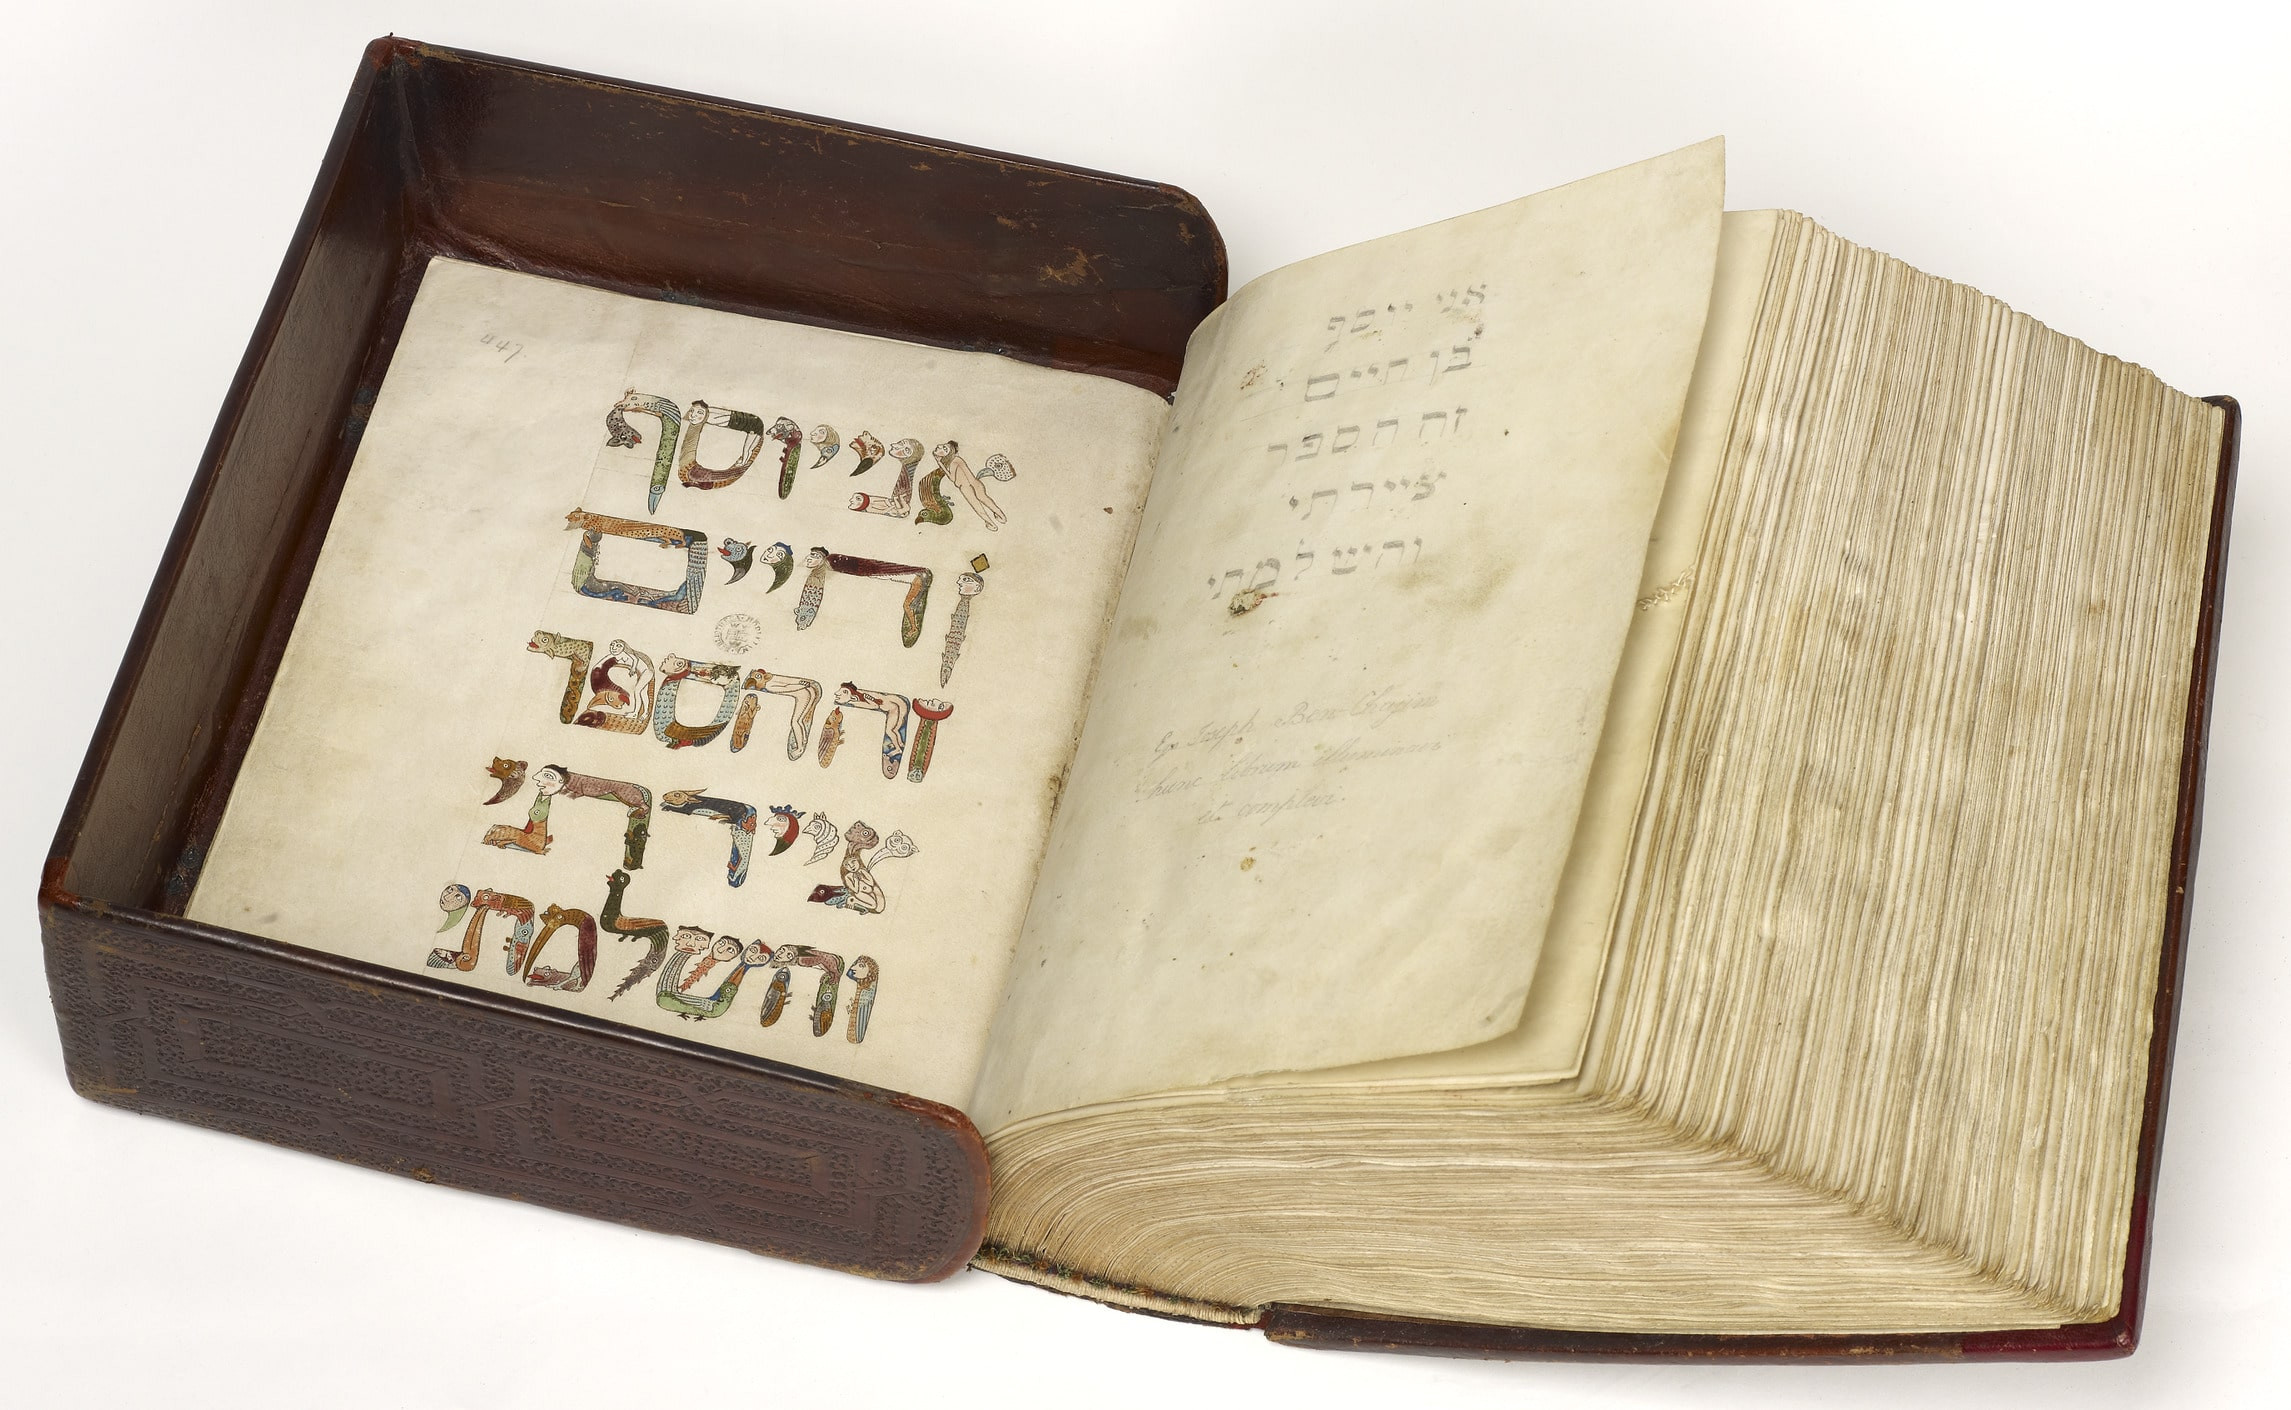 447.
אני יוסף
ן חיים
זה הספר
ציירתי
והשלמתי
אני יוסף
בן חיים
זה הספר
ציירתי
והשלמתי
Joseph Ben
hunc librum
et complevi.